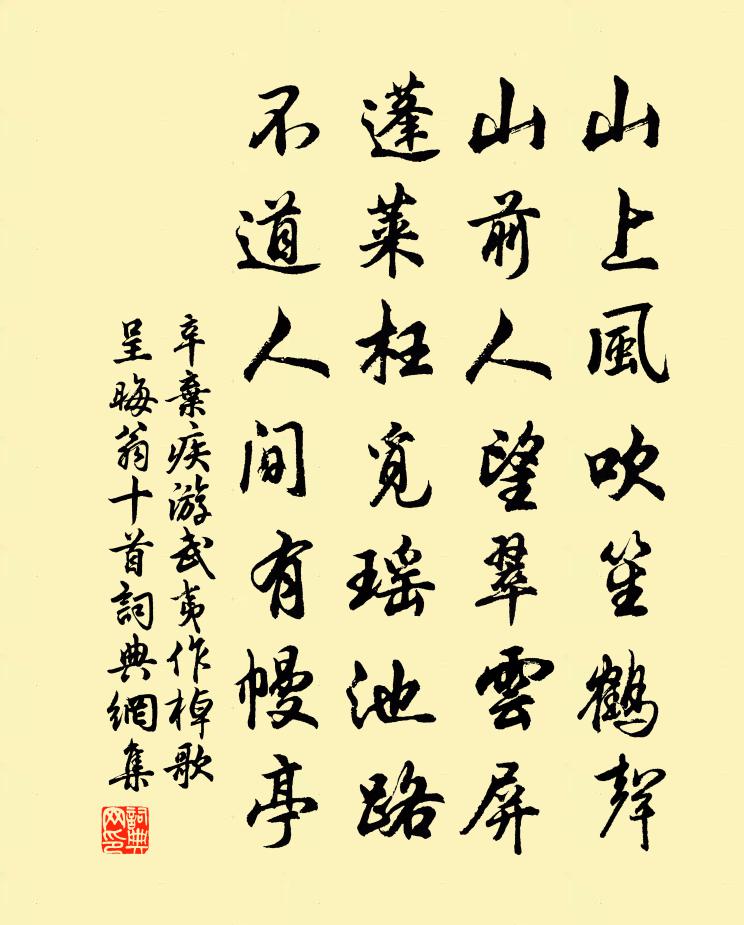 山上風吹笙鶴聲
山前人望翠雲屏
蓬萊枉覓瑶池路
不道人間有幔亭
辛棄疾游武夷作棹歌
呈晦翁十首詞典網集
詞典网印